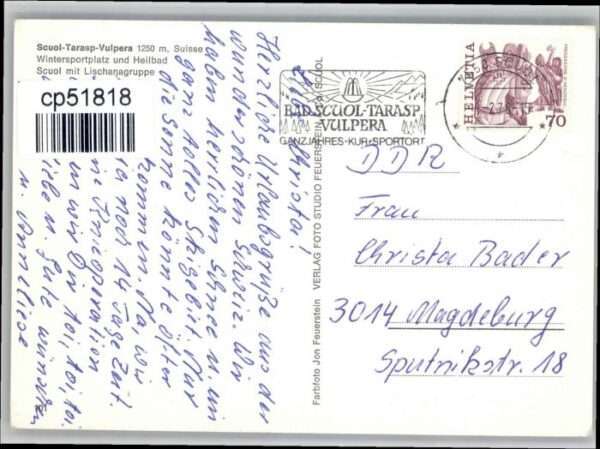 Scuol-Tarasp-Vulpera 1250 m, Suisse
Wintersportplatz und Heilbad
Scuol mit Lischanagruppe
cp51818
Liebe Christa!
Herzliche Urlaubsgrüße aus der
wunderschönen Schweiz. Wir
haben herrlichen Schnee u. ein
ganz tolles Skigebiet. Nur
die Sonne könnte öfter
kommen. Na, wir
noch 14 Tage Zeit.
operation
wir Dir toi, toi, toi.
Liebe u. Gute wünschen
u. Anneliese
Farbfoto Jon Feuerstein VERLAG FOTO STUDIO FEUERSTEIN SCUOL
BAD SCUOL-TARASP
VULPERA
GANZJAHRES-KUR+SPORTORT
HELVETIA
70
DDR
Frau
Christa Bader
3014 Magdeburg
Sputnikstr. 18